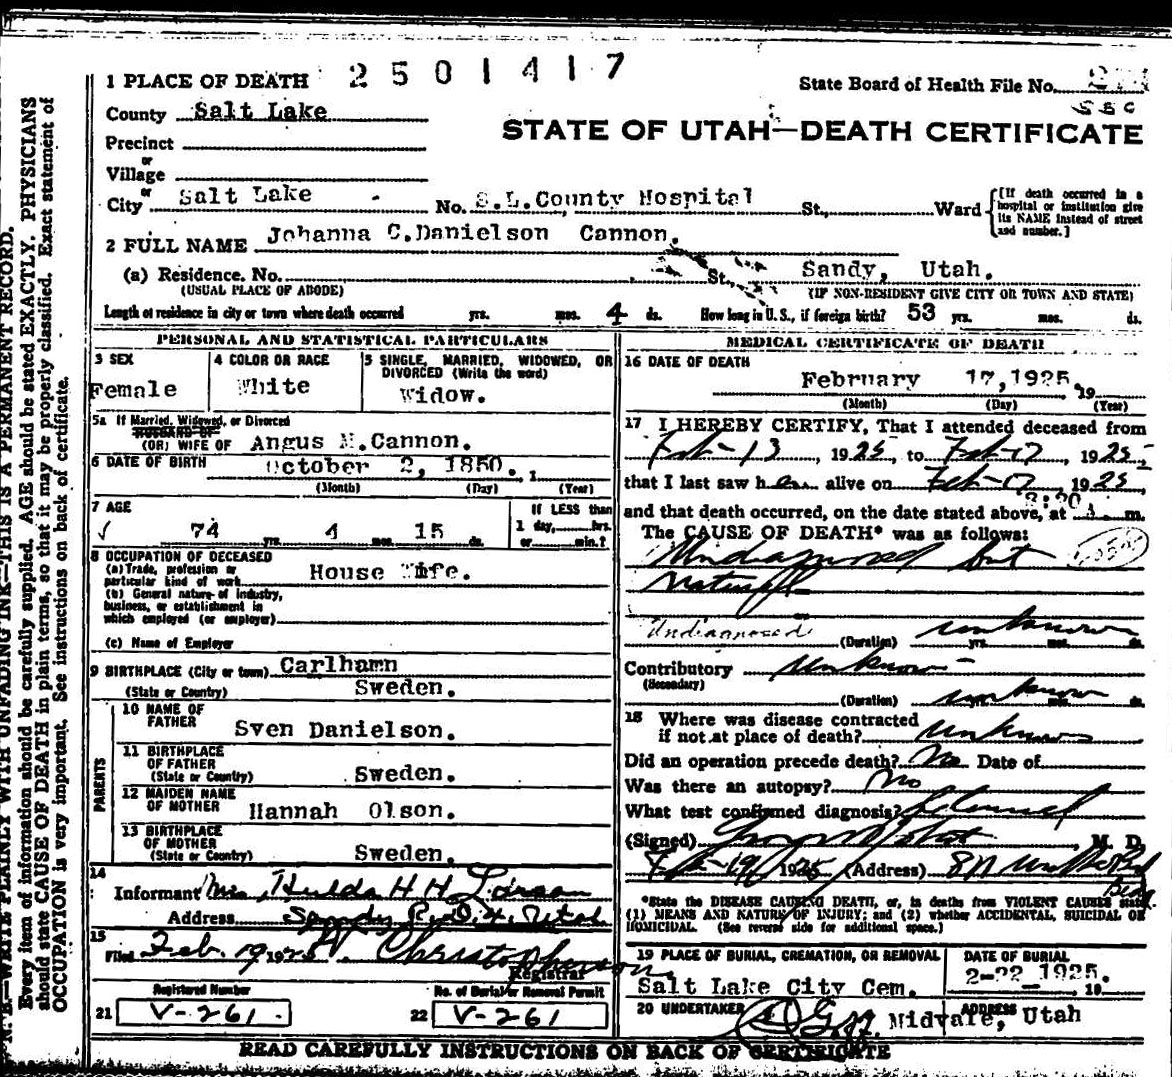 1 PLACE OF DEATH 2501417
State Board of Health File No.
County Salt Lake
STATE OF UTAH—DEATH CERTIFICATE
Precinct
or
Village
or
City Salt Lake - No. S.L.County Hospital St., Ward
[If death occurred in a hospital or institution give its NAME instead of street and number.]
2 FULL NAME Johanna C.Danielson Cannon.
(a) Residence. No. St., Sandy, Utah.
(USUAL PLACE OF ABODE) (IF NON-RESIDENT GIVE CITY OR TOWN AND STATE)
Length of residence in city or town where death occurred yrs. mos. 4 ds. How long in U. S., if foreign birth? 53 yrs. mos. ds.
PERSONAL AND STATISTICAL PARTICULARS
3 SEX
Female
4 COLOR OR RACE
White
5 SINGLE, MARRIED, WIDOWED, OR
DIVORCED (Write the word)
Widow.
5a If Married, Widowed, or Divorced
HUSBAND OF
(OR) WIFE OF Angus M.Cannon.
6 DATE OF BIRTH October 2, 1850. 1
(Month) (Day) (Year)
7 AGE
74 yrs. 4 mos. 15 ds.
If LESS than
1 day, hrs.
or min.?
8 OCCUPATION OF DECEASED
(a) Trade, profession or
particular kind of work House Wife.
(b) General nature of industry,
business, or establishment in
which employed (or employer)
(c) Name of Employer
9 BIRTHPLACE (City or town) Carlhamn
(State or Country) Sweden.
PARENTS
10 NAME OF
FATHER Sven Danielson.
11 BIRTHPLACE
OF FATHER
(State or Country) Sweden.
12 MAIDEN NAME
OF MOTHER Hannah Olson.
13 BIRTHPLACE
OF MOTHER
(State or Country) Sweden.
14
Informant Mrs, Hulda H H Larson
Address Sandy R.D.4. Utah
15
Filed Feb. 19 1925 Christophersons
Registrar
Registered Number
21 V-261
No. of Burial or Removal Permit
22 V-261
MEDICAL CERTIFICATE OF DEATH
16 DATE OF DEATH
February 17,1925. 19
(Month) (Day) (Year)
17 I HEREBY CERTIFY, That I attended deceased from
Feb-13, 1925, to Feb-17, 1925
that I last saw her alive on Feb-17, 1925
and that death occurred, on the date stated above, at m.
The CAUSE OF DEATH* was as follows:
Undiagnosed but
Natural
Undiagnosed (Duration) unknown yrs. mos. ds.
Contributory Unknown
(Secondary)
(Duration) unknown yrs. mos. ds.
18 Where was disease contracted
if not at place of death? unknown
Did an operation precede death? No Date of
Was there an autopsy? No
What test confirmed diagnosis? Clinical
(Signed) M. D.
Feb-19, 1925 (Address)
*State the DISEASE CAUSING DEATH, or, in deaths from VIOLENT CAUSES state
(1) MEANS AND NATURE OF INJURY; and (2) whether ACCIDENTAL, SUICIDAL OR
HOMICIDAL. (See reverse side for additional space.)
19 PLACE OF BURIAL, CREMATION, OR REMOVAL
Salt Lake City Cem.
DATE OF BURIAL
2-22 1925. 19
20 UNDERTAKER
ADDRESS
Midvale, Utah
READ CAREFULLY INSTRUCTIONS ON BACK OF CERTIFICATE
N. B.—WRITE PLAINLY WITH UNFADING INK—THIS IS A PERMANENT RECORD.
Every item of information should be carefully supplied. AGE should be stated EXACTLY. PHYSICIANS
should state CAUSE OF DEATH in plain terms, so that it may be properly classified. Exact statement of
OCCUPATION is very important. See instructions on back of certificate.